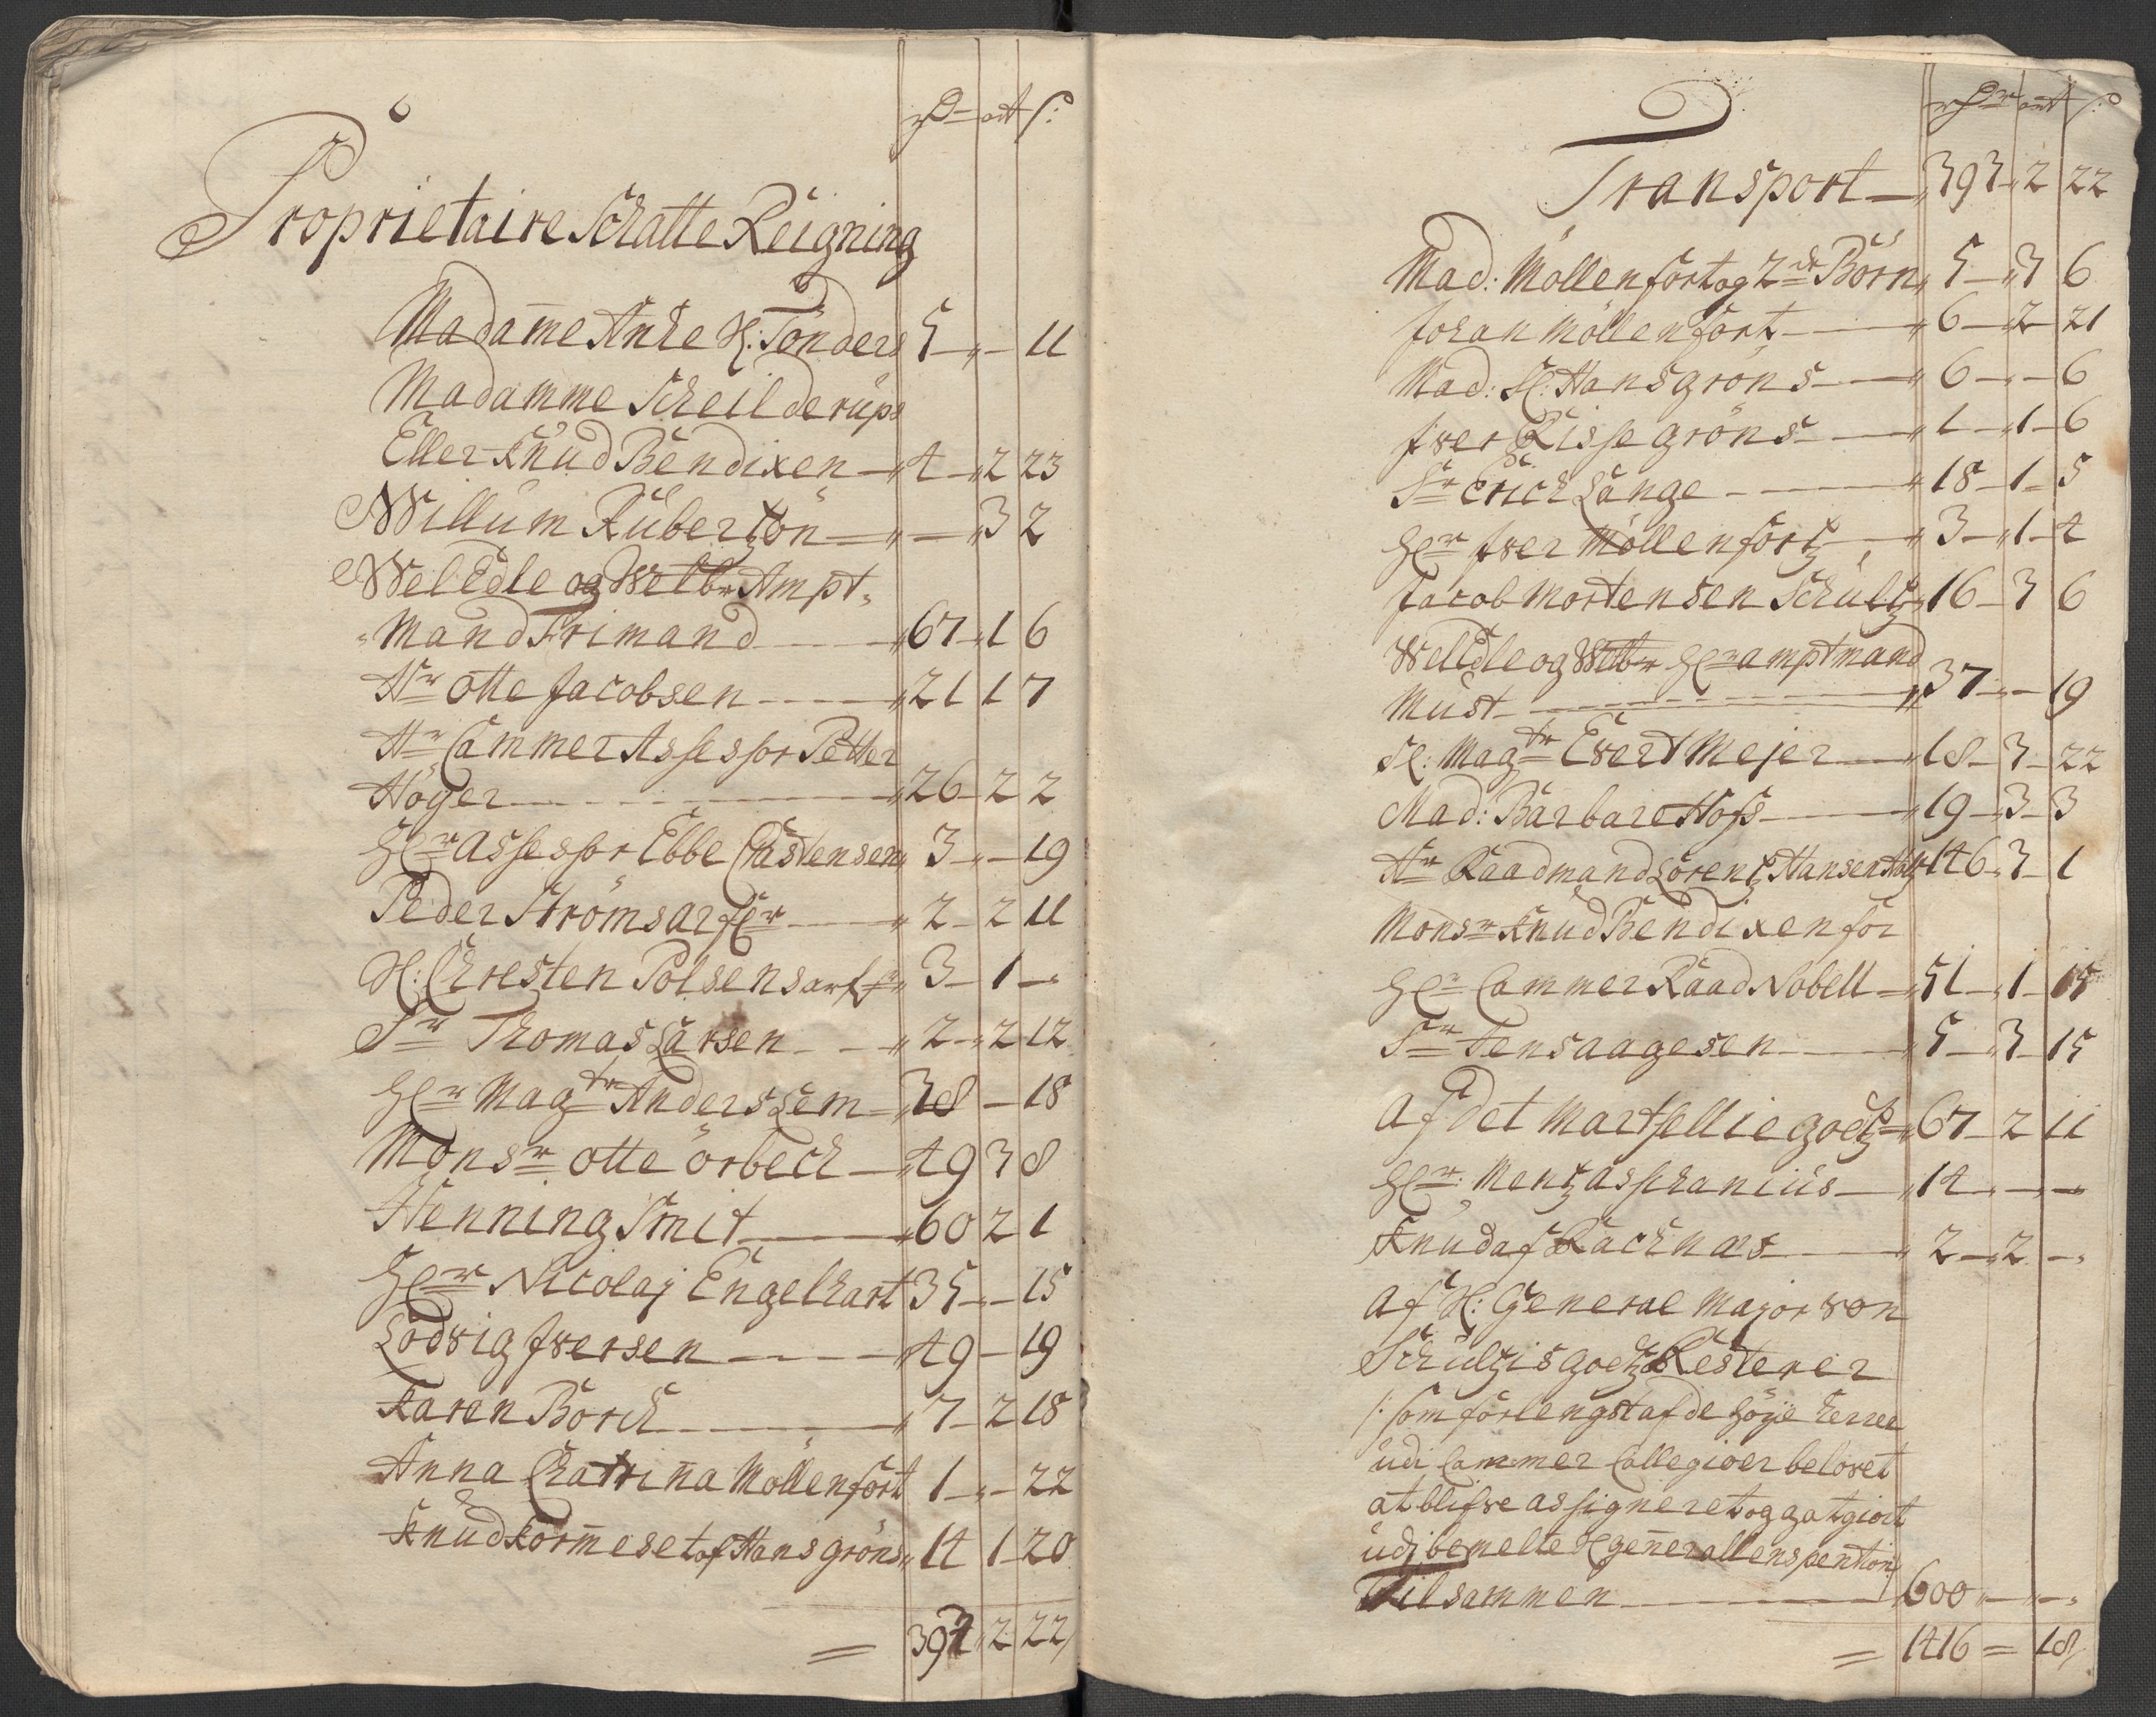 rd= ort s:
Proprietaire Schatte Reigning
Madame Anke H: Tönders 5 – „ – 11
Madamme Scheilderups
Eller Knud Bendixen – 4 – 2 23
Willum Rubertön – „ – 3 2
Wel Edle og Welbr Ampt„
„Mand Frimand – 67 – 1 6
Hr Otte Jacobsen – 21 1 7
Hr Cammer Assessor Petter
Höyer – 26 – 2 2
Hr Assessor Ebbe Castensen 3 „ – 19
Peder Ströms arfer – 2 – 2 11
H: Chresten Polsens arf – 3 – 1 – „
Sr Thomas Larsen – 2 – 2 12
Hr Magtr Anders Lem – 38 – 18
Monsr Otte Örbech – 49 3 8
Henning Smit – 60 2 1
Hr Nicolaj Engelhart 35 – „ – 15
Lodvig Iversen – 49 – 19
Karen Borch – 7 – 2 18
Anna Chatrina Mollenfort 1 – „ – 22
Knud Kormeset af Hans gröns 14 1 20
= 393 2 22
rdr ort s:
Transport – 393 – 2 22
Mad: Möllenfort og 2de Börn 5 – 3 6
Johan Möllenfort – 6 – 2 – 21
Mad: Sl: Hans gröns – 6 – „ – 6
Iver Risse gröns – 1 – 1 – 6
Sr Erich Lange – 18 – 1 – 5
Hr Iver Möllenfort – 3 – 1 – 4
Jacob Mortensen Schultz 16 – 3 6
Wel Edle og Welbr Hr amptmand
Must – 37 „ – 19
Sl: Magtr Evert Mejer – 18 – 3 – 22
Mad: Barbare Hoss – 19 – 3 – 3
Hr Raadmand Lorentz Hansen 146 – 3 – 1
Monsr Knud Bendixen for
Hr Cammer Raad Nobell – 51 – 1 – 15
Sr Jens aagesen – 5 – 3 – 15
Af det Martsellie goetz – 67 – 2 11
Hr: Mentz Asschanius – 14 – „ –
Knud af Rachnæs – 2 – 2 – „
Af H: General Major von
Schultzis goetz Resterer
/: som forlengst af de höye herrer
udi Cammer Collegio er belovet
at blifve assigneret og gatgiort
udj bemelte H generallens pention
Tilsammen – 600 „ – „ – „
= 1416 = 18